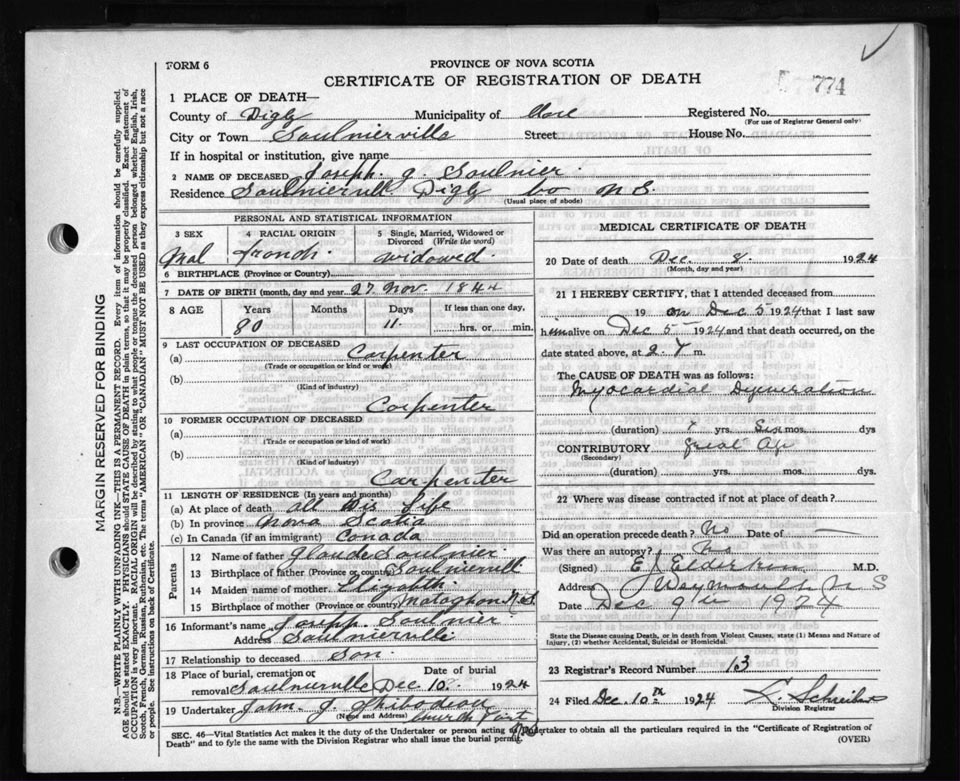 FORM 6
PROVINCE OF NOVA SCOTIA
CERTIFICATE OF REGISTRATION OF DEATH
774
1 PLACE OF DEATH—
County of Digby Municipality of Clare Registered No.
(For use of Registrar General only)
City or Town Saulnierville Street House No.
If in hospital or institution, give name
2 NAME OF DECEASED Joseph. J. Saulnier.
Residence Saulnierville Digby Co N S.
(Usual place of abode)
PERSONAL AND STATISTICAL INFORMATION
3 SEX
Mal
4 RACIAL ORIGIN
french.
5 Single, Married, Widowed or Divorced (Write the word)
widowed.
6 BIRTHPLACE (Province or Country)
7 DATE OF BIRTH (month, day and year 27 Nov. 1844
8 AGE Years Months Days If less than one day,
80 11 hrs. or min.
9 LAST OCCUPATION OF DECEASED
(a) Carpenter
(Trade or occupation or kind or work)
(b)
(Kind of industry)
Carpenter
10 FORMER OCCUPATION OF DECEASED
(a)
(Trade or occupation or kind of work)
(b)
(Kind of industry)
Carpenter
11 LENGTH OF RESIDENCE (In years and months)
(a) At place of death all His life
(b) In province Nova Scotia
(c) In Canada (if an immigrant) Canada
Parents
12 Name of father Glaude Saulnier.
13 Birthplace of father (Province or country)
14 Maiden name of mother Elizabeth.
15 Birthplace of mother (Province or country) N.S.
16 Informant's name Joseph. Saulnier
Address Saulnierville
17 Relationship to deceased Son.
18 Place of burial, cremation or removal Saulnierville
Date of burial
Dec 10 1924
19 Undertaker John. J.
(Name and Address) Church Point
N.S.
MEDICAL CERTIFICATE OF DEATH
20 Date of death Dec. 8. 1924
(Month, day and year)
21 I HEREBY CERTIFY, that I attended deceased from
19 on Dec 5 1924 that I last saw
him alive on Dec 5 1924 and that death occurred, on the
date stated above, at m.
The CAUSE OF DEATH was as follows:
Myocardial
(duration) yrs. Six mos. dys
CONTRIBUTORY Great Age
(Secondary)
(duration) yrs. mos. dys.
22 Where was disease contracted if not at place of death?
Did an operation precede death? No Date of —
Was there an autopsy? No
(Signed) E J Elderkin M.D.
Address Weymouth N S
Date Dec 9th 1924
State the Disease causing Death, or in death from Violent Causes, state (1) Means and Nature of
Injury, (2) whether Accidental, Suicidal or Homicidal.
23 Registrar's Record Number 13
24 Filed Dec. 10th 1924
Division Registrar
SEC. 46—Vital Statistics Act makes it the duty of the Undertaker or person acting as Undertaker to obtain all the particulars required in the "Certificate of Registration of
Death" and to fyle the same with the Division Registrar who shall issue the burial permit.
(OVER)
MARGIN RESERVED FOR BINDING
N.B.—WRITE PLAINLY WITH UNFADING INK.—THIS IS A PERMANENT RECORD. Every item of information should be carefully supplied.
AGE should be stated EXACTLY. PHYSICIANS should STATE CAUSE OF DEATH in plain terms, so that it may be properly classified. Exact statement of
OCCUPATION is very important. RACIAL ORIGIN will be described by stating to what people or tongue the deceased person belonged, whether English, Irish,
Scotch, French, German, Russian, Ruthenian, etc. The terms "AMERICAN" or "CANADIAN" MUST NOT BE USED as they express citizenship but not a race
or people. See instructions on back of Certificate.